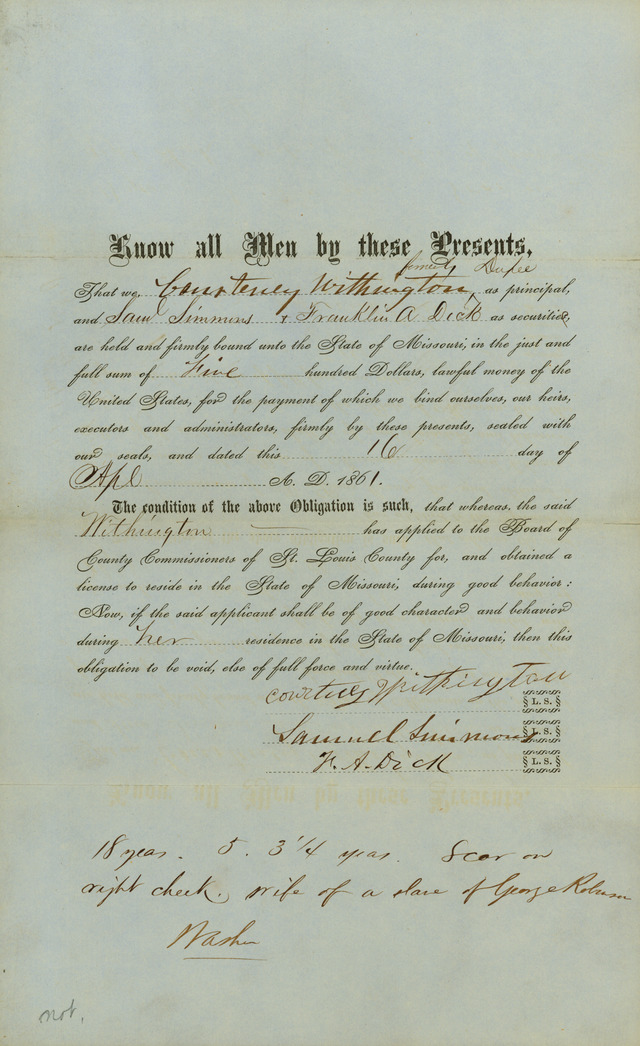 Know all Men by these Presents,
formerly Duxee
That we, Courteney Withington, as principal,
and Saml Simmons & Franklin A Dick as securities
are held and firmly bound unto the State of Missouri, in the just and
full sum of Five hundred Dollars, lawful money of the
United States, for the payment of which we bind ourselves, our heirs,
executors and administrators, firmly by these presents, sealed with
our seals, and dated this 16 day of
Apl A. D. 1861.
The condition of the above Obligation is such, that whereas, the said
Withington has applied to the Board of
County Commissioners of St. Louis County for, and obtained a
license to reside in the State of Missouri, during good behavior:
Now, if the said applicant shall be of good character and behavior
during her residence in the State of Missouri; then this
obligation to be void, else of full force and virtue.
Courtney Withington L. S.
Samuel Simmons L. S.
F. A. Dick L. S.
18 year. 5. 3 1/4 Scar on
right cheek. wife of a slave of George Robinson
Washer
not.